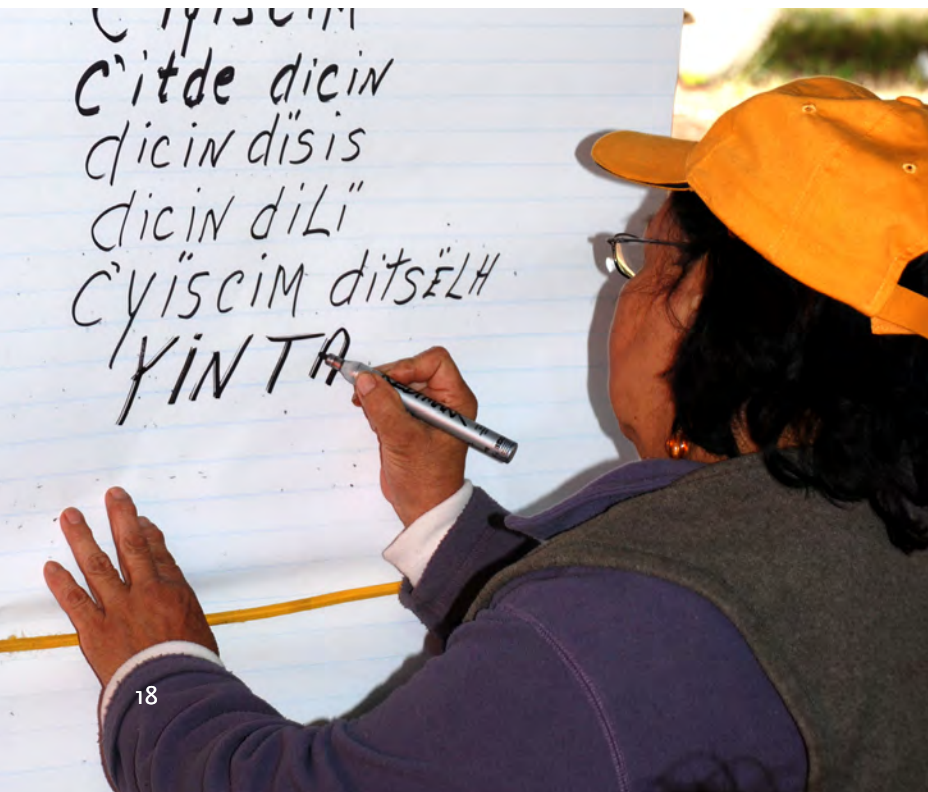 C'yïscim
C'itde dicin
dicin dïsis
dicin dilï
C'yïscim ditsëlh
YINTA
18